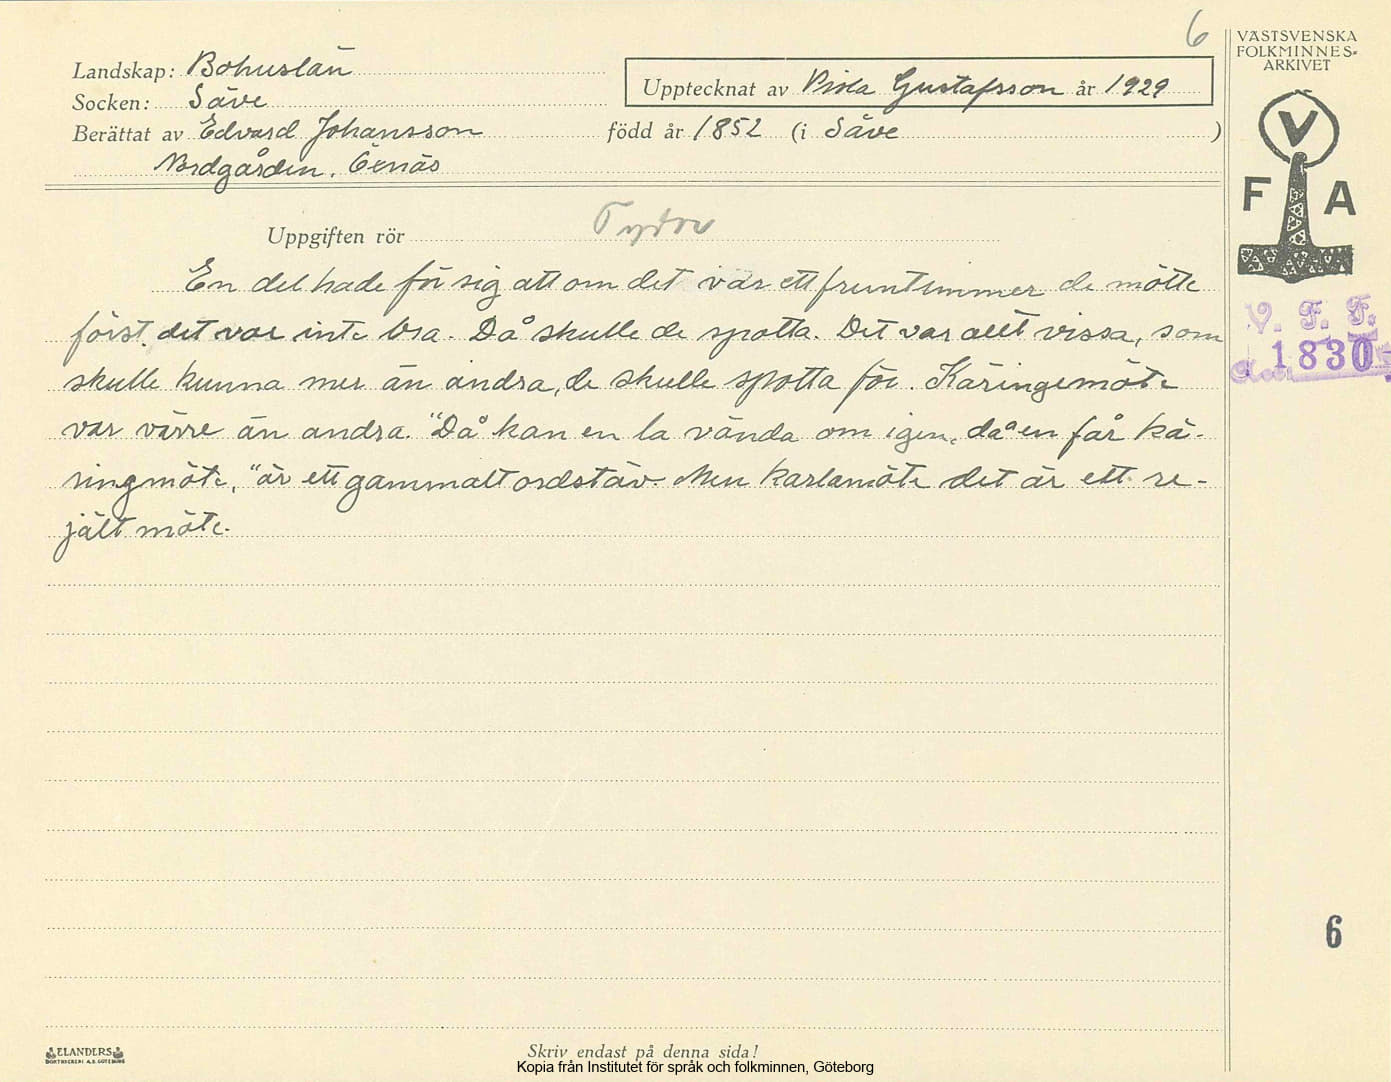 6
VÄSTSVENSKA
FOLKMINNES-
ARKIVET
Landskap: Bohuslän
Upptecknat av Viola Gustafsson år 1929
Socken: Säve
Berättat av Edvard Johansson född år 1852 (i Säve )
Nordgården, Osnäs
V
F A
Uppgiften rör Tydor
En del hade för sig att om det var ett fruntimmer de mötte
först, det var inte bra. Då skulle de spotta. Det var allt vissa, som
skulle kunna mer än andra, de skulle spotta för. Käringemöte
var värre än andra. "Då kan en la vända om igen, då en får kä-
ringmöte," är ett gammalt ordstäv. Men karlamöte det är ett re-
jält möte.
V. F. F.
1830
6
ELANDERS
BOKTRYCKERI A.B. GÖTEBORG
Skriv endast på denna sida!
Kopia från Institutet för språk och folkminnen, Göteborg